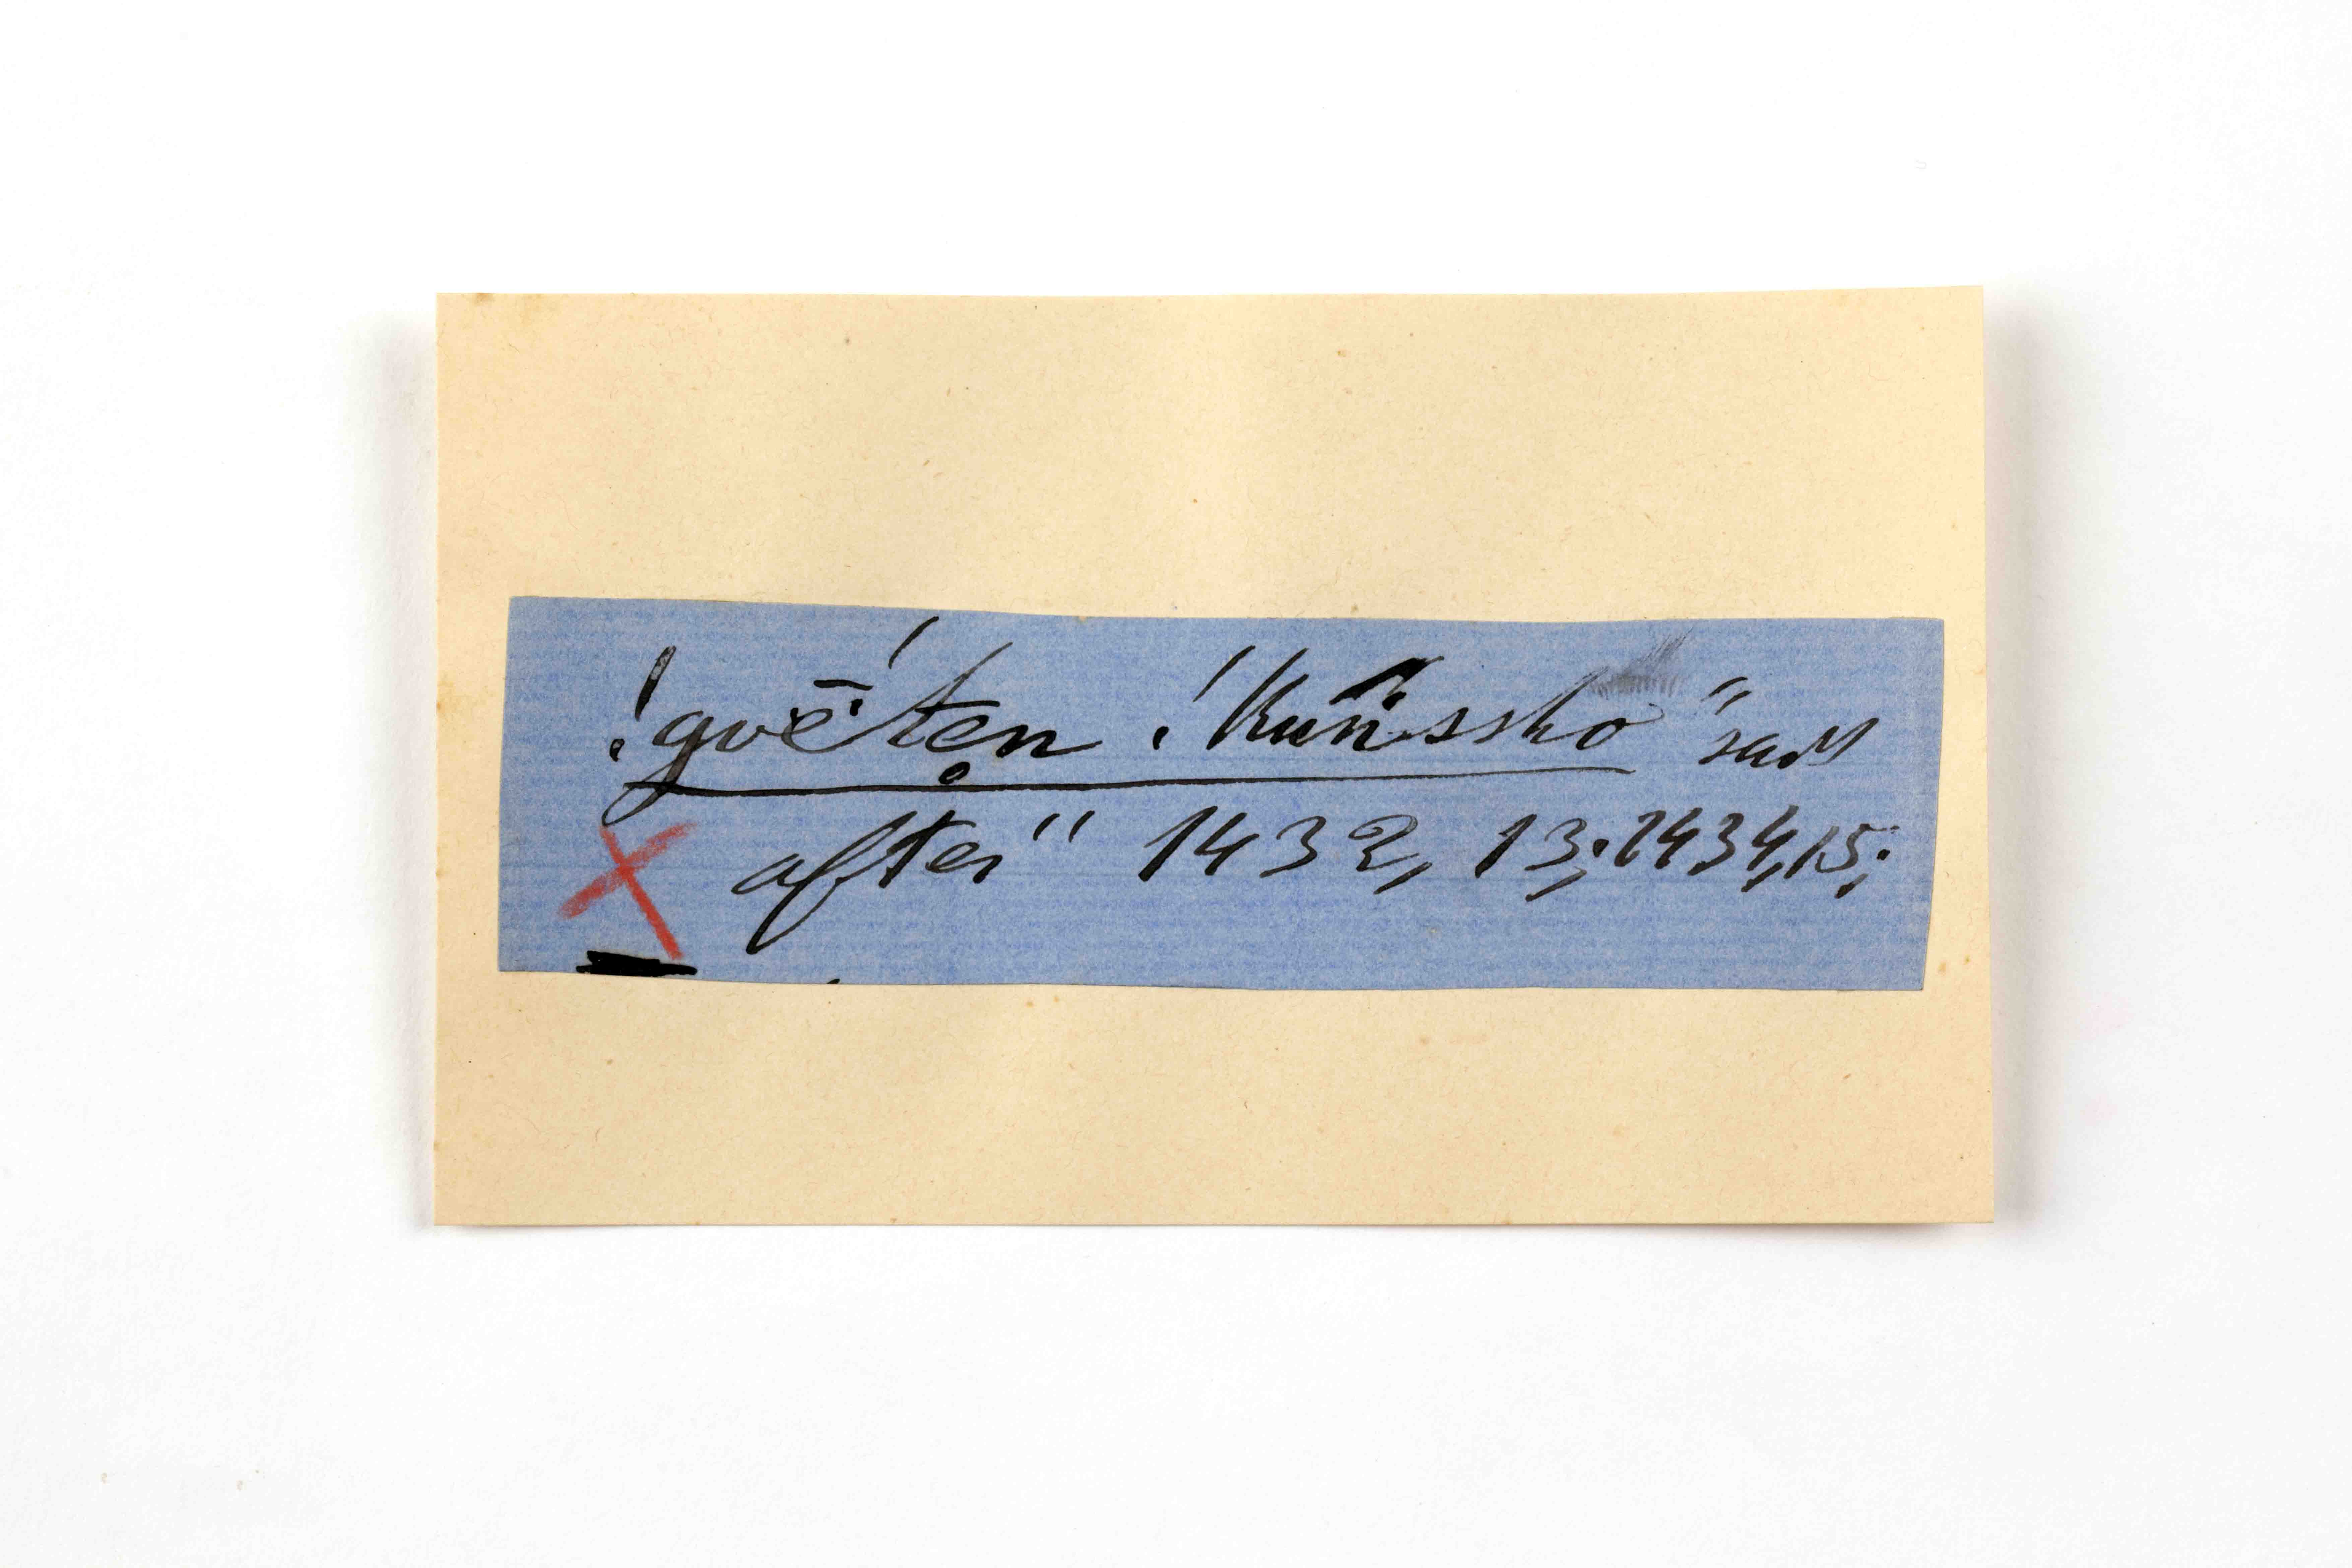 !gvḗten !kuń̈ssho "sa"
after" 1432, 13; 1434, 15;